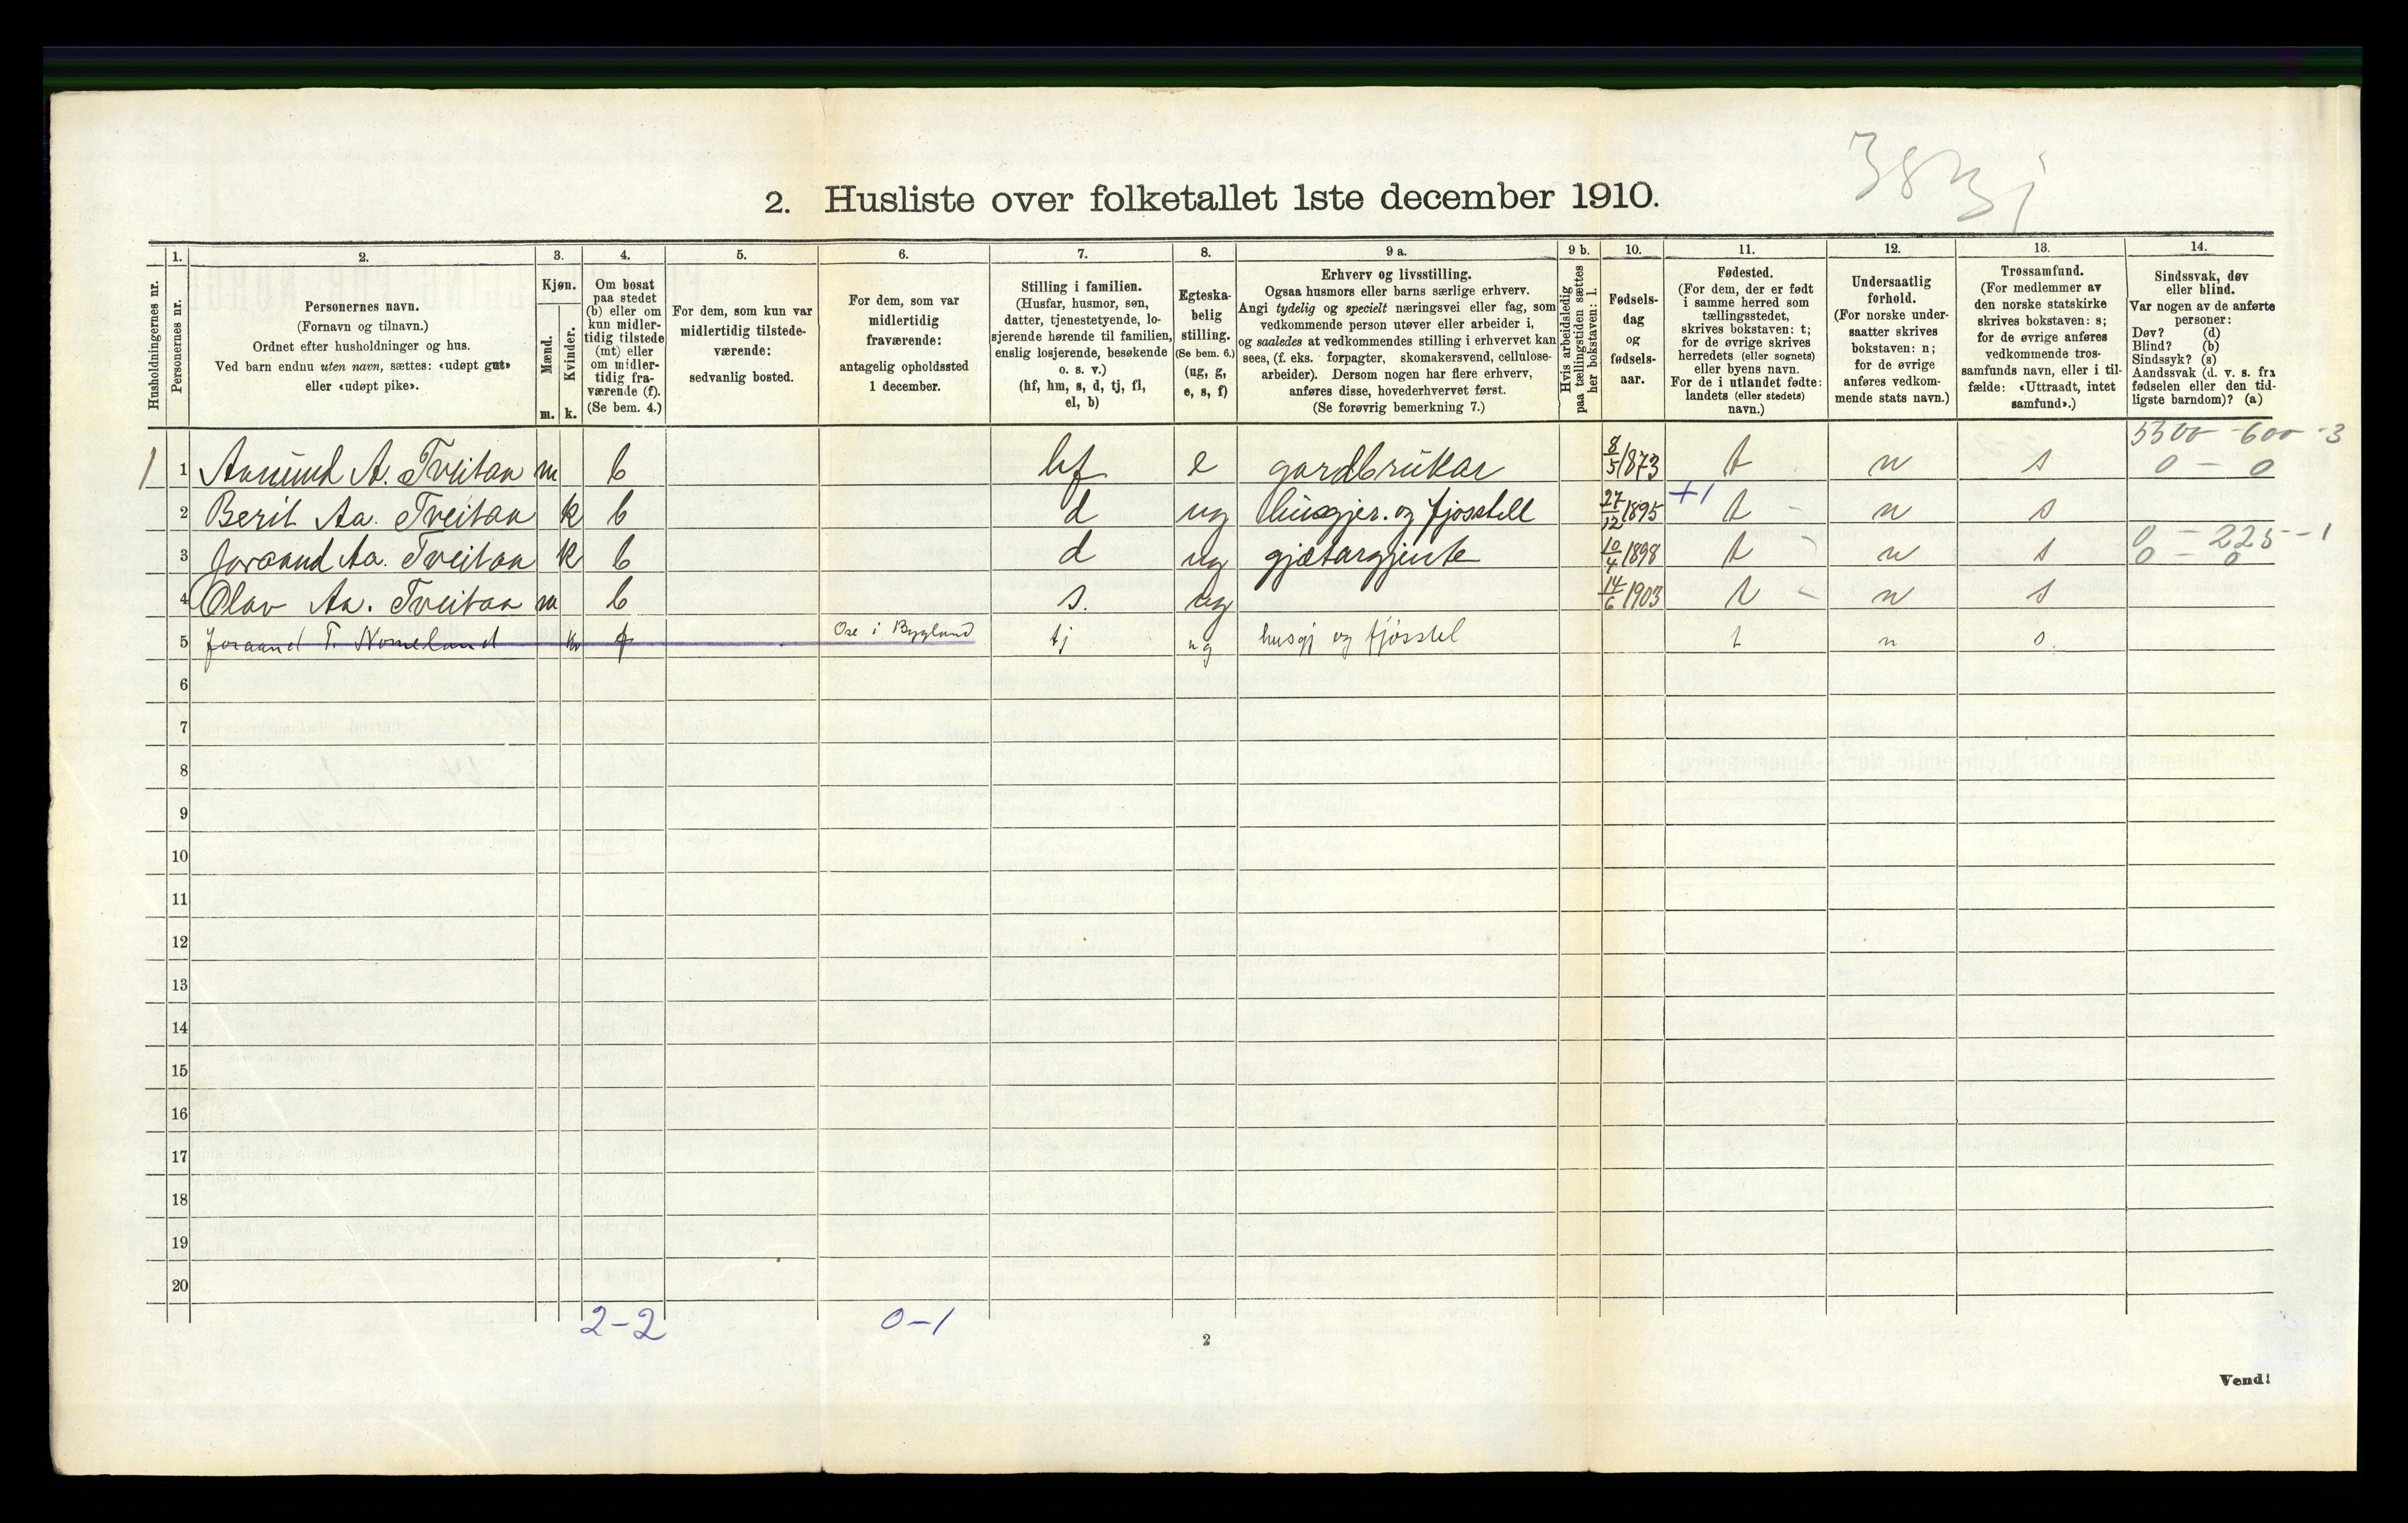 383j
2. Husliste over folketallet 1ste december 1910.
Husholdningernes nr.
1. Personernes nr.
2. Personernes navn.
(Fornavn og tilnavn.)
Ordnet efter husholdninger og hus.
Ved barn endnu uten navn, sættes: «udøpt gut»
eller «udøpt pike».
3. Kjøn.
Mænd. m.
Kvinder. k.
4. Om bosat
paa stedet
(b) eller om
kun midler-
tidig tilstede
(mt) eller
om midler-
tidig fra-
værende (f).
(Se bem. 4.)
5. For dem, som kun var
midlertidig tilstede-
værende:
sedvanlig bosted.
6. For dem, som var
midlertidig
fraværende:
antagelig opholdssted
1 december.
7. Stilling i familien.
(Husfar, husmor, søn,
datter, tjenestetyende, lo-
sjerende hørende til familien,
enslig losjerende, besøkende
o. s. v.)
(hf, hm, s, d, tj, fl,
el, b)
8. Egteska-
belig
stilling.
(Se bem. 6.)
(ug, g,
e, s, f)
9 a. Erhverv og livsstilling.
Ogsaa husmors eller barns særlige erhverv.
Angi tydelig og specielt næringsvei eller fag, som
vedkommende person utøver eller arbeider i,
og saaledes at vedkommendes stilling i erhvervet kan
sees, (f. eks. forpagter, skomakersvend, cellulose-
arbeider). Dersom nogen har flere erhverv,
anføres disse, hovederhvervet først.
(Se forøvrig bemerkning 7.)
9 b. Hvis arbeidsledig
paa tællingstiden sættes
her bokstaven: l.
10. Fødsels-
dag
og
fødsels-
aar.
11. Fødested.
(For dem, der er født
i samme herred som
tællingsstedet,
skrives bokstaven: t;
for de øvrige skrives
herredets (eller sognets)
eller byens navn.
For de i utlandet fødte:
landets (eller stedets)
navn.)
12. Undersaatlig
forhold.
(For norske under-
saatter skrives
bokstaven: n;
for de øvrige
anføres vedkom-
mende stats navn.)
13. Trossamfund.
(For medlemmer av
den norske statskirke
skrives bokstaven: s;
for de øvrige anføres
vedkommende tros-
samfunds navn, eller i til-
fælde: «Uttraadt, intet
samfund».)
14. Sindssvak, døv
eller blind.
Var nogen av de anførte
personer:
Døv? (d)
Blind? (b)
Sindssyk? (s)
Aandssvak (d. v. s. fra
fødselen eller den tid-
ligste barndom)? (a)
5300 - 600 - 3
1 1 Aamund A. Tveitaa m b hf e gardbrukar 8/5 1873 t n s 0 - 0
2 Berit Aa. Tveitaa k b d ug husgjer. og fjosstell 27/12 1895 +1 t - n s
0 - 225 - 1
3 Joraand Aa. Tveitaa k b d ug gjætargjente 10/4 1898 t - n s 0 - 0
4 Olav Aa. Tveitaa m b s. ug 14/6 1903 t - n s
5 Joraand T. Nomeland k f Ose i Bygland tj ug husgj og fjósstel t n s.
6
7
8
9
10
11
12
13
14
15
16
17
18
19
20
2-2 0-1
2
Vend!